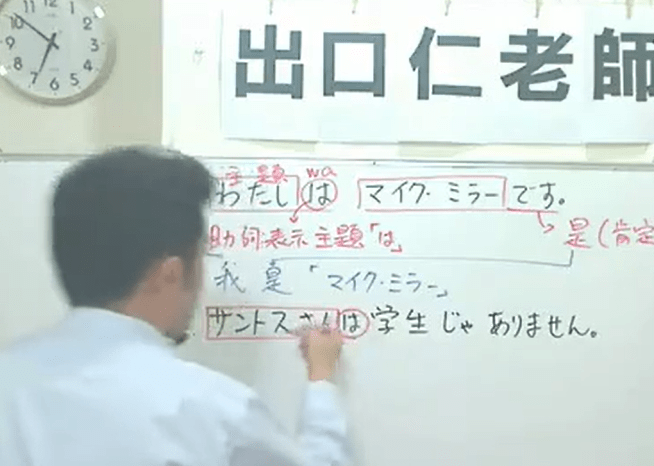 12 1 2 3 4 5 6 7 8 9 10 11
出口仁老師
主題 wa
わたしは マイク・ミラーです。
助詞表示主題「は」 是(肯定
我是「マイク・ミラー」
サントスさんは学生じゃありません。